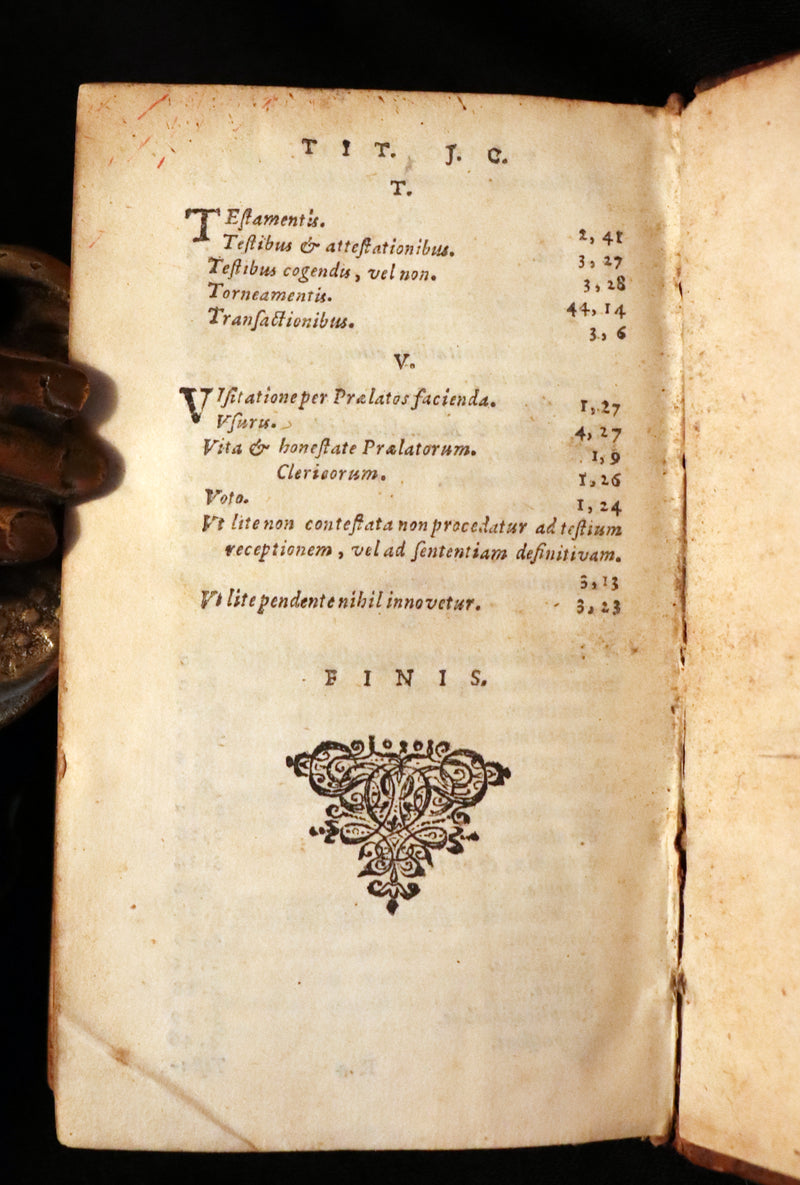 TIT. J. C.
T.
TEſtamentis. 2, 41
Teſtibus & atteſtationibus. 3, 27
Teſtibus cogendis, vel non. 3, 28
Torneamentis. 44, 14
Tranſactionibus. 3, 6
V.
VIſitatione per Prælatos facienda. 1, 27
Vſuris. 4, 27
Vita & honeſtate Prælatorum. 1, 9
Clericorum. 1, 26
Voto. 1, 24
Vt lite non conteſtata non procedatur ad teſtium
receptionem, vel ad ſententiam definitivam.
3, 13
Vt lite pendente nihil innovetur. 3, 23
FINIS.